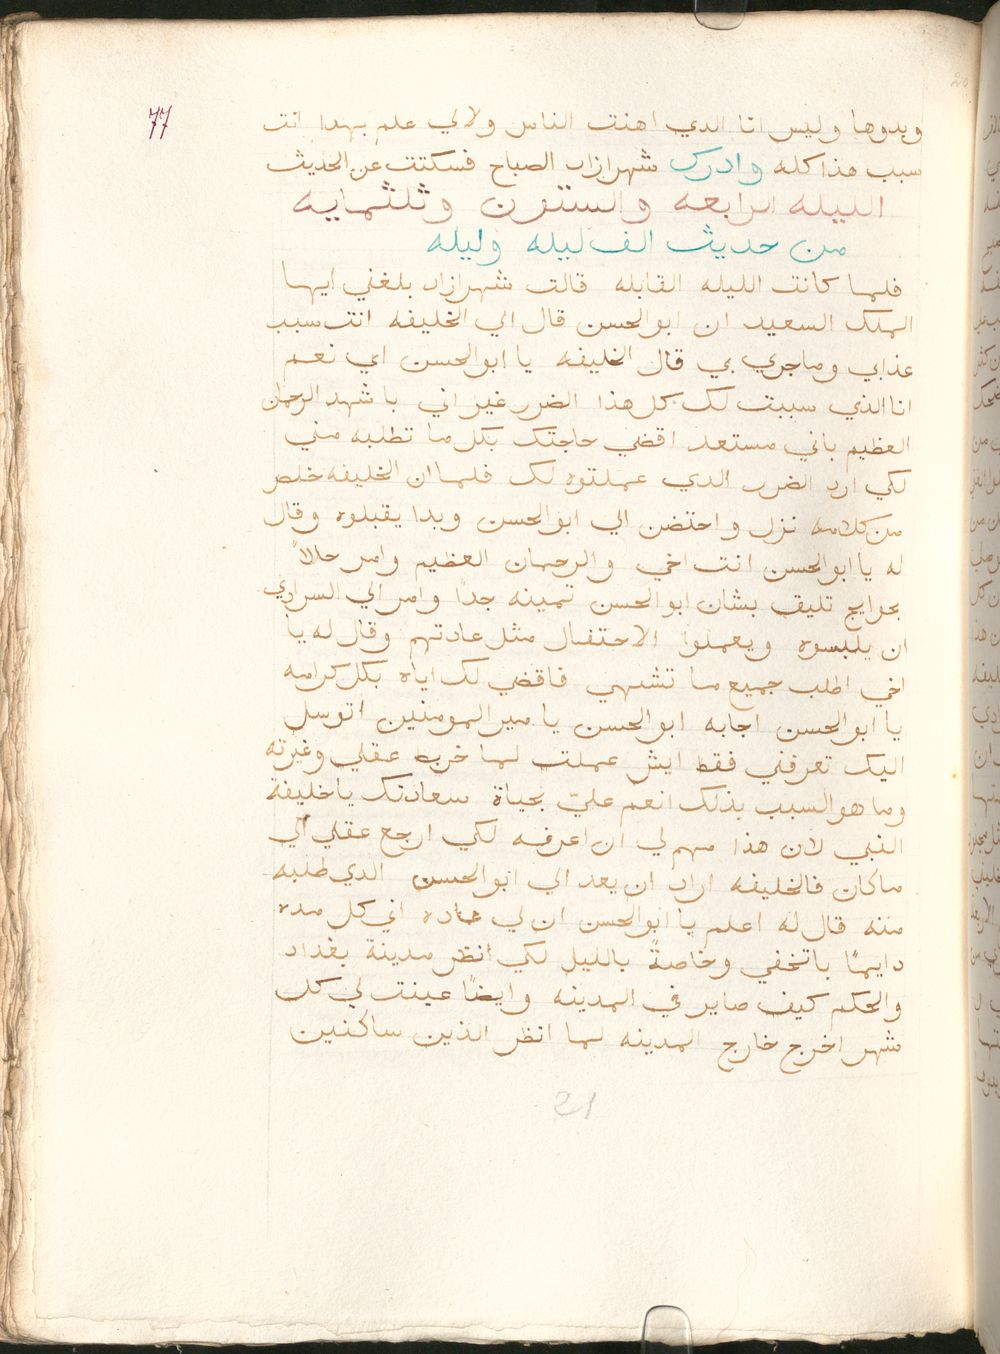 77
وبدوها وليس انا الدي اهنت الناس ولا لي علم بهدا انت
سبب هذا كله وادرك شهرازاد الصباح فسكتت عن الحديث
الليله الرابعه والستون وثلثمايه
من حديث الف ليله وليله
فلما كانت الليله القابله قالت شهرازاد بلغني ايها
الملك السعيد ان ابو الحسن قال الي الخليفه انت سبب
عذابي وما جري بي قال الخليفه يا ابو الحسن اي نعم
انا الذي سببت لك كل هذا الضرر غير اني باشهد الرحمان
العظيم باني مستعد اقضي حاجتك بكل ما تطلبه مني
لكي ارد الضرر الدي عملتوه لك فلما ان الخليفه خلص
من كلامه نزل واحتضن الي ابو الحسن وبدا يقبلوه وقال
له يا ابو الحسن انت اخي والرحمان العظيم وامر حالاً
بحوايج تليق بشان ابو الحسن تمينه جداً وامر الي السراري
ان يلبسوه ويعملوا الاحتفال مثل عادتهم وقال له يا
اخي اطلب جميع ما تشتهي فاقضي لك اياه بكل كرامه
يا ابو الحسن اجابه ابو الحسن يا مير المومنين اتوسل
اليك تعرفني فقط ايش عملت لما خربط عقلي وغيرته
وما هو السبب بذلك انعم عليّ بحياة سعادتك يا خليفة
النبي لان هذا مهم لي ان اعرفه لكي ارجع عقلي الي
ما كان فالخليفه اراد ان يعد الي ابو الحسن الدي طلبه
منه قال له اعلم يا ابو الحسن ان لي عاده اني كل مده
دايمًا باتخفي وخاصةً بالليل لكي انظر مدينة بغداد
والحكم كيف صاير في المدينه وايضًا عينت لي كل
شهر اخرج خارج المدينه لما انظر الذين ساكنين
21